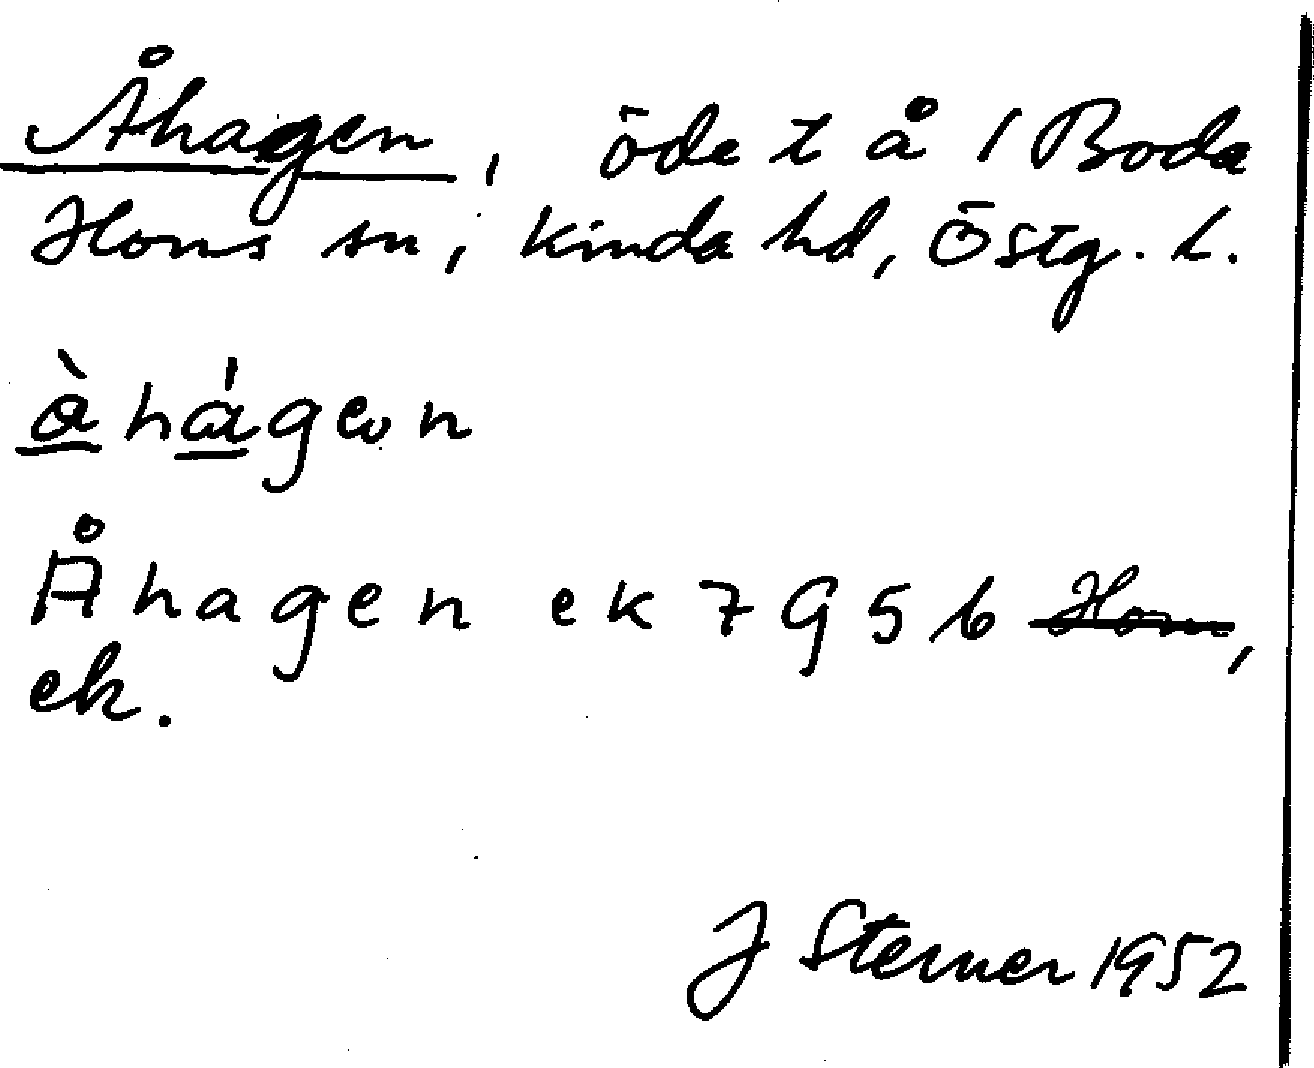 Åhagen, öde t å / Boda
Horns sn, Kinda hd, Östg. l.
àhágen
Åhagen ek 7 9 5 6 Horn,
ek.
J Sterner 1952